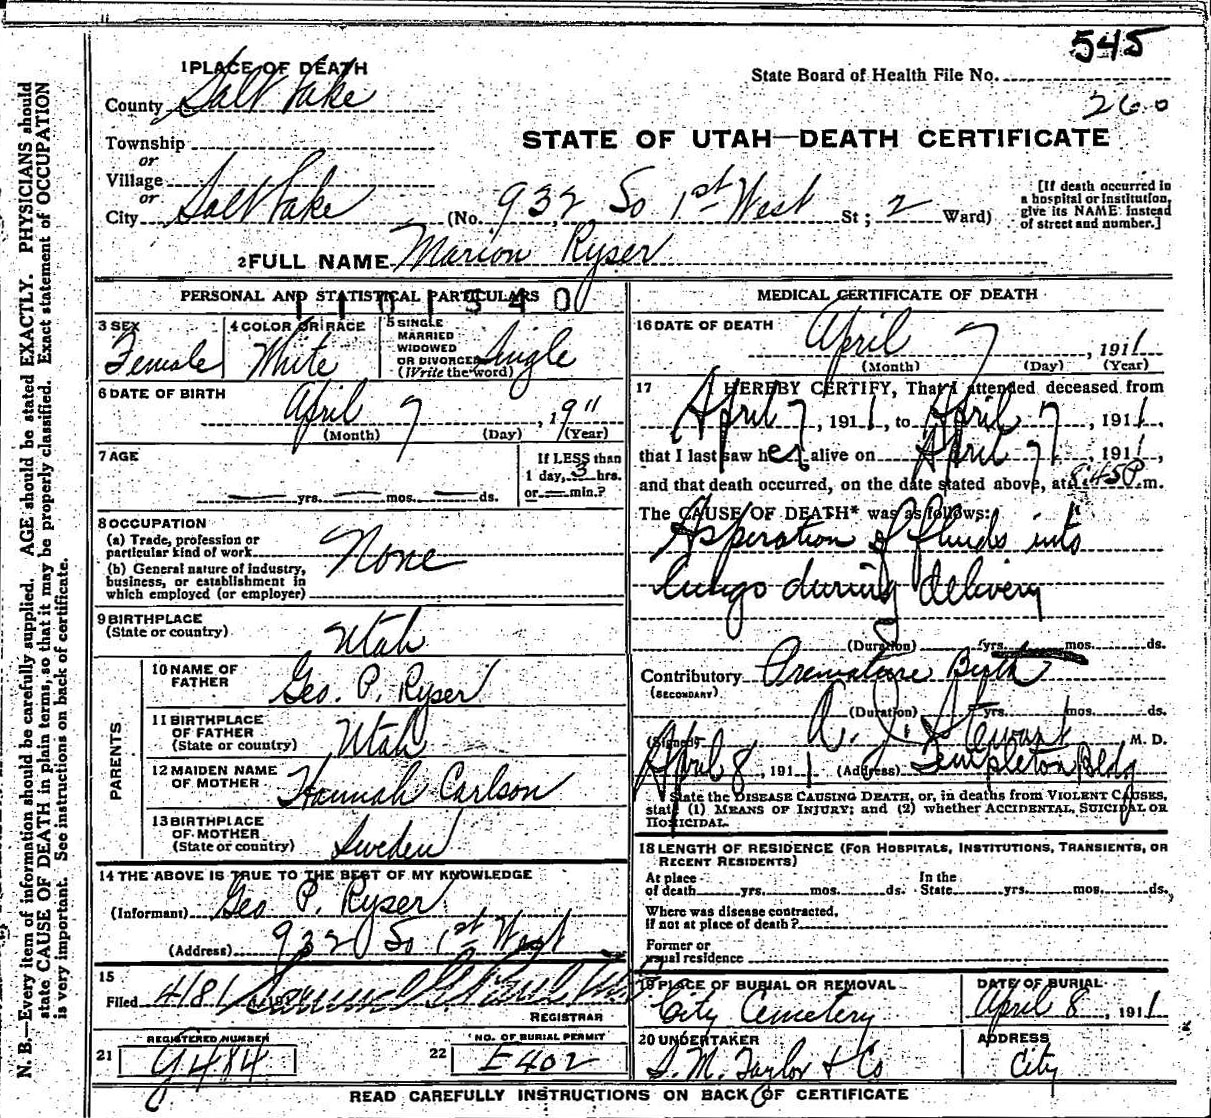 545
State Board of Health File No.
260
1 PLACE OF DEATH
County Salt Lake
STATE OF UTAH—DEATH CERTIFICATE
Township
or
Village
or
City Salt Lake (No. 932 So 1st West St; 2 Ward)
[If death occurred in a hospital or institution, give its NAME instead of street and number.]
2 FULL NAME Marion Ryser
PERSONAL AND STATISTICAL PARTICULARS
1101540
3 SEX Female
4 COLOR OR RACE White
5 SINGLE MARRIED WIDOWED OR DIVORCED (Write the word) Single
6 DATE OF BIRTH
April 7, 1911
(Month) (Day) (Year)
7 AGE
yrs. mos. ds.
If LESS than 1 day, 3 hrs. or — min.?
8 OCCUPATION
(a) Trade, profession or particular kind of work None
(b) General nature of industry, business, or establishment in which employed (or employer)
9 BIRTHPLACE (State or country) Utah
PARENTS
10 NAME OF FATHER Geo. P. Ryser
11 BIRTHPLACE OF FATHER (State or country) Utah
12 MAIDEN NAME OF MOTHER Hannah Carlson
13 BIRTHPLACE OF MOTHER (State or country) Sweden
14 THE ABOVE IS TRUE TO THE BEST OF MY KNOWLEDGE
(Informant) Geo P. Ryser
(Address) 932 So 1st West
15
Filed 4/8/, 191
REGISTRAR
21 REGISTERED NUMBER G484
22 NO. OF BURIAL PERMIT E402
MEDICAL CERTIFICATE OF DEATH
16 DATE OF DEATH
April 7, 1911
(Month) (Day) (Year)
17 I HEREBY CERTIFY, That I attended deceased from
April 7, 1911, to April 7, 1911
that I last saw her alive on April 7, 1911,
and that death occurred, on the date stated above, at 8:45 P. m.
The CAUSE OF DEATH* was as follows:
Aspiration of fluids into
lungs during delivery
(Duration) yrs. mos. ds.
Contributory Premature Birth
(SECONDARY)
(Duration) yrs. mos. ds.
(Signed) A. J. Stewart M. D.
April 8, 1911 (Address) Templeton Bldg
*State the DISEASE CAUSING DEATH, or, in deaths from VIOLENT CAUSES,
state (1) MEANS OF INJURY; and (2) whether ACCIDENTAL, SUICIDAL OR
HOMICIDAL.
18 LENGTH OF RESIDENCE (FOR HOSPITALS, INSTITUTIONS, TRANSIENTS, OR RECENT RESIDENTS)
At place of death yrs. mos. ds. In the State yrs. mos. ds.,
Where was disease contracted, if not at place of death?
Former or usual residence
19 PLACE OF BURIAL OR REMOVAL City Cemetery
DATE OF BURIAL April 8, 1911
20 UNDERTAKER S. M. Taylor & Co
ADDRESS City
READ CAREFULLY INSTRUCTIONS ON BACK OF CERTIFICATE
N. B.—Every item of information should be carefully supplied. AGE should be stated EXACTLY. PHYSICIANS should
state CAUSE OF DEATH in plain terms, so that it may be properly classified. Exact statement of OCCUPATION
is very important. See instructions on back of certificate.